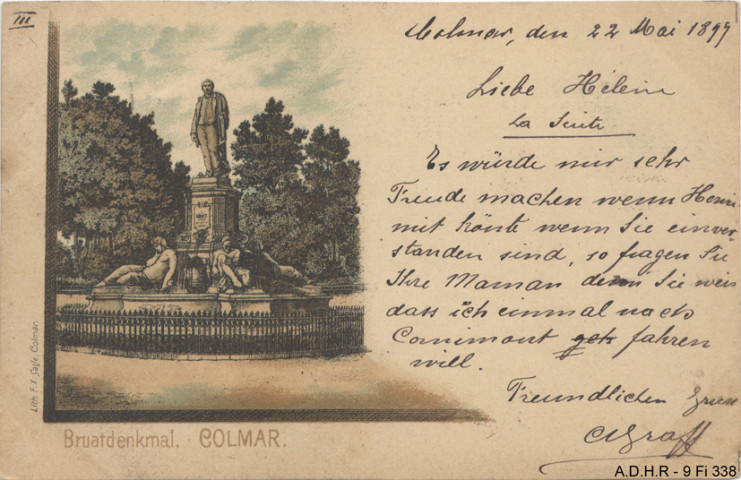 III
Colmar, den 22 Mai 1897
Liebe Hélein
La Suite
Es würde mir sehr
Freude machen wenn Henri
mit könte wenn Sie einver-
standen sind, so fragen Sie
Ihre Maman denn Sie weis
dass ich einmal nach
Cornimont geh fahren
will.
Freundlichen Gruss
CGraff
Lith. F.X. Saile, Colmar.
Bruatdenkmal. COLMAR.
A.D.H.R - 9 Fi 338